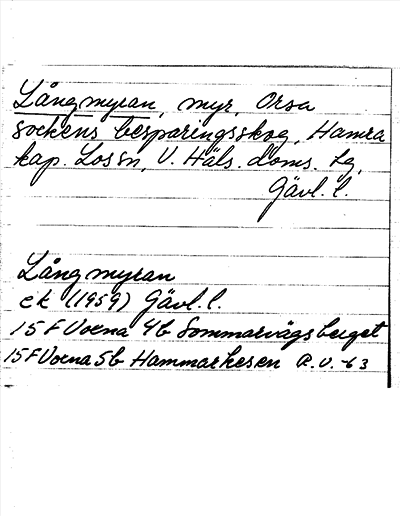 Långmyran, myr, Orsa
sockens besparingsskog, Hamra
kap. Lossn, V. Häls. doms. lg,
Gävl. l.
Långmyran
ek (1959) Gävl. l.
15 F Voxna 4b Sommarvägsberget
15 F Voxna 5b Hammarkesen R.V. -63